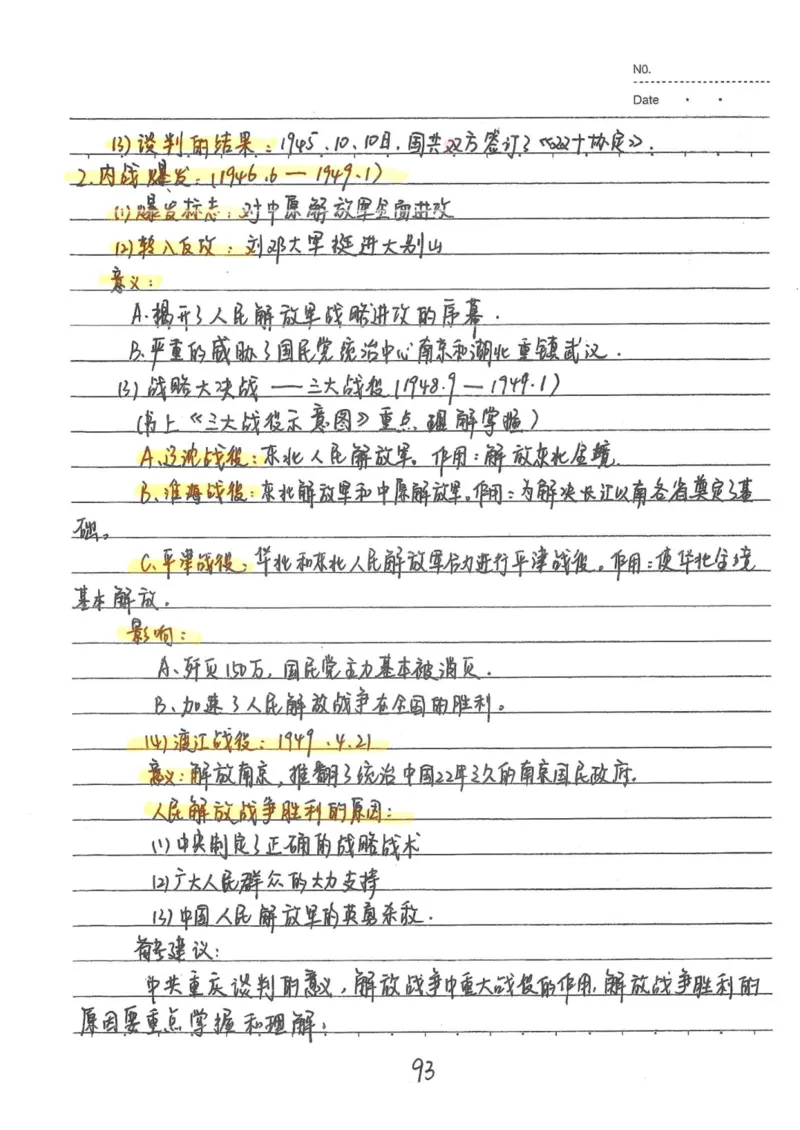 NO.
Date
(3)谈判的结果:1945.10.10日,国共双方签订了《双十协定》.
2.内战爆发:(1946.6—1949.1)
(1)爆发标志:对中原解放军全面进攻
(2)转入反攻:刘邓大军挺进大别山
意义:
A.揭开了人民解放军战略进攻的序幕.
B.严重的威胁了国民党统治中心南京和湖北重镇武汉.
(3)战略大决战——三大战役(1948.9—1949.1)
(书上《三大战役示意图》重点理解掌握)
A.辽沈战役:东北人民解放军。作用:解放东北全境.
B.淮海战役:东北解放军和中原解放军。作用:为解决长江以南各省奠定了基
础。
C.平津战役:华北和东北人民解放军合力进行平津战役。作用:使华北全境
基本解放.
影响:
A.歼灭150万,国民党主力基本被消灭.
B.加速了人民解放战争在全国的胜利。
(4)渡江战役:1949.4.21
意义:解放南京,推翻了统治中国22年之久的南京国民政府.
人民解放战争胜利的原因:
(1)中央制定了正确的战略战术
(2)广大人民群众的大力支持
(3)中国人民解放军的英勇杀敌.
备考建议:
中共重庆谈判的意义,解放战争中重大战役的作用.解放战争胜利的
原因要重点掌握和理解;
93